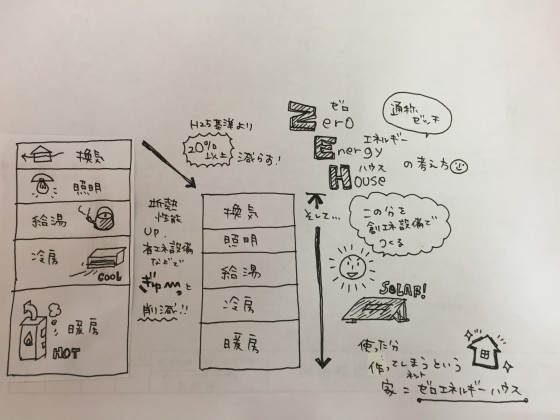 ゼロ
Zero
エネルギー
Energy
ハウス
House
の考え方
通称
ゼッチ
換気
照明
給湯
冷房
COOL
暖房
HOT
H25基準より
20%以上
減らす!
断熱
性能
UP、
省エネ設備
などで
ギュッと
削減!!
換気
照明
給湯
冷房
暖房
そして…
この分を
創エネ設備で
つくる
SOLAR!
使った分
作ってしまうという
家=ゼロエネルギーハウス